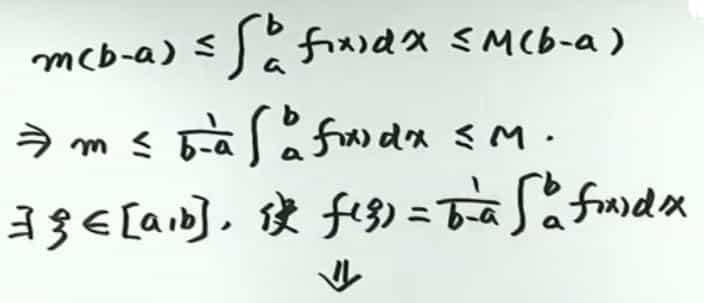 m(b-a) ≤ ∫_a^b f(x)dx ≤ M(b-a)
⇒ m ≤ 1/(b-a) ∫_a^b f(x)dx ≤ M.
∃ξ∈[a,b], 使 f(ξ) = 1/(b-a) ∫_a^b f(x)dx
⇓